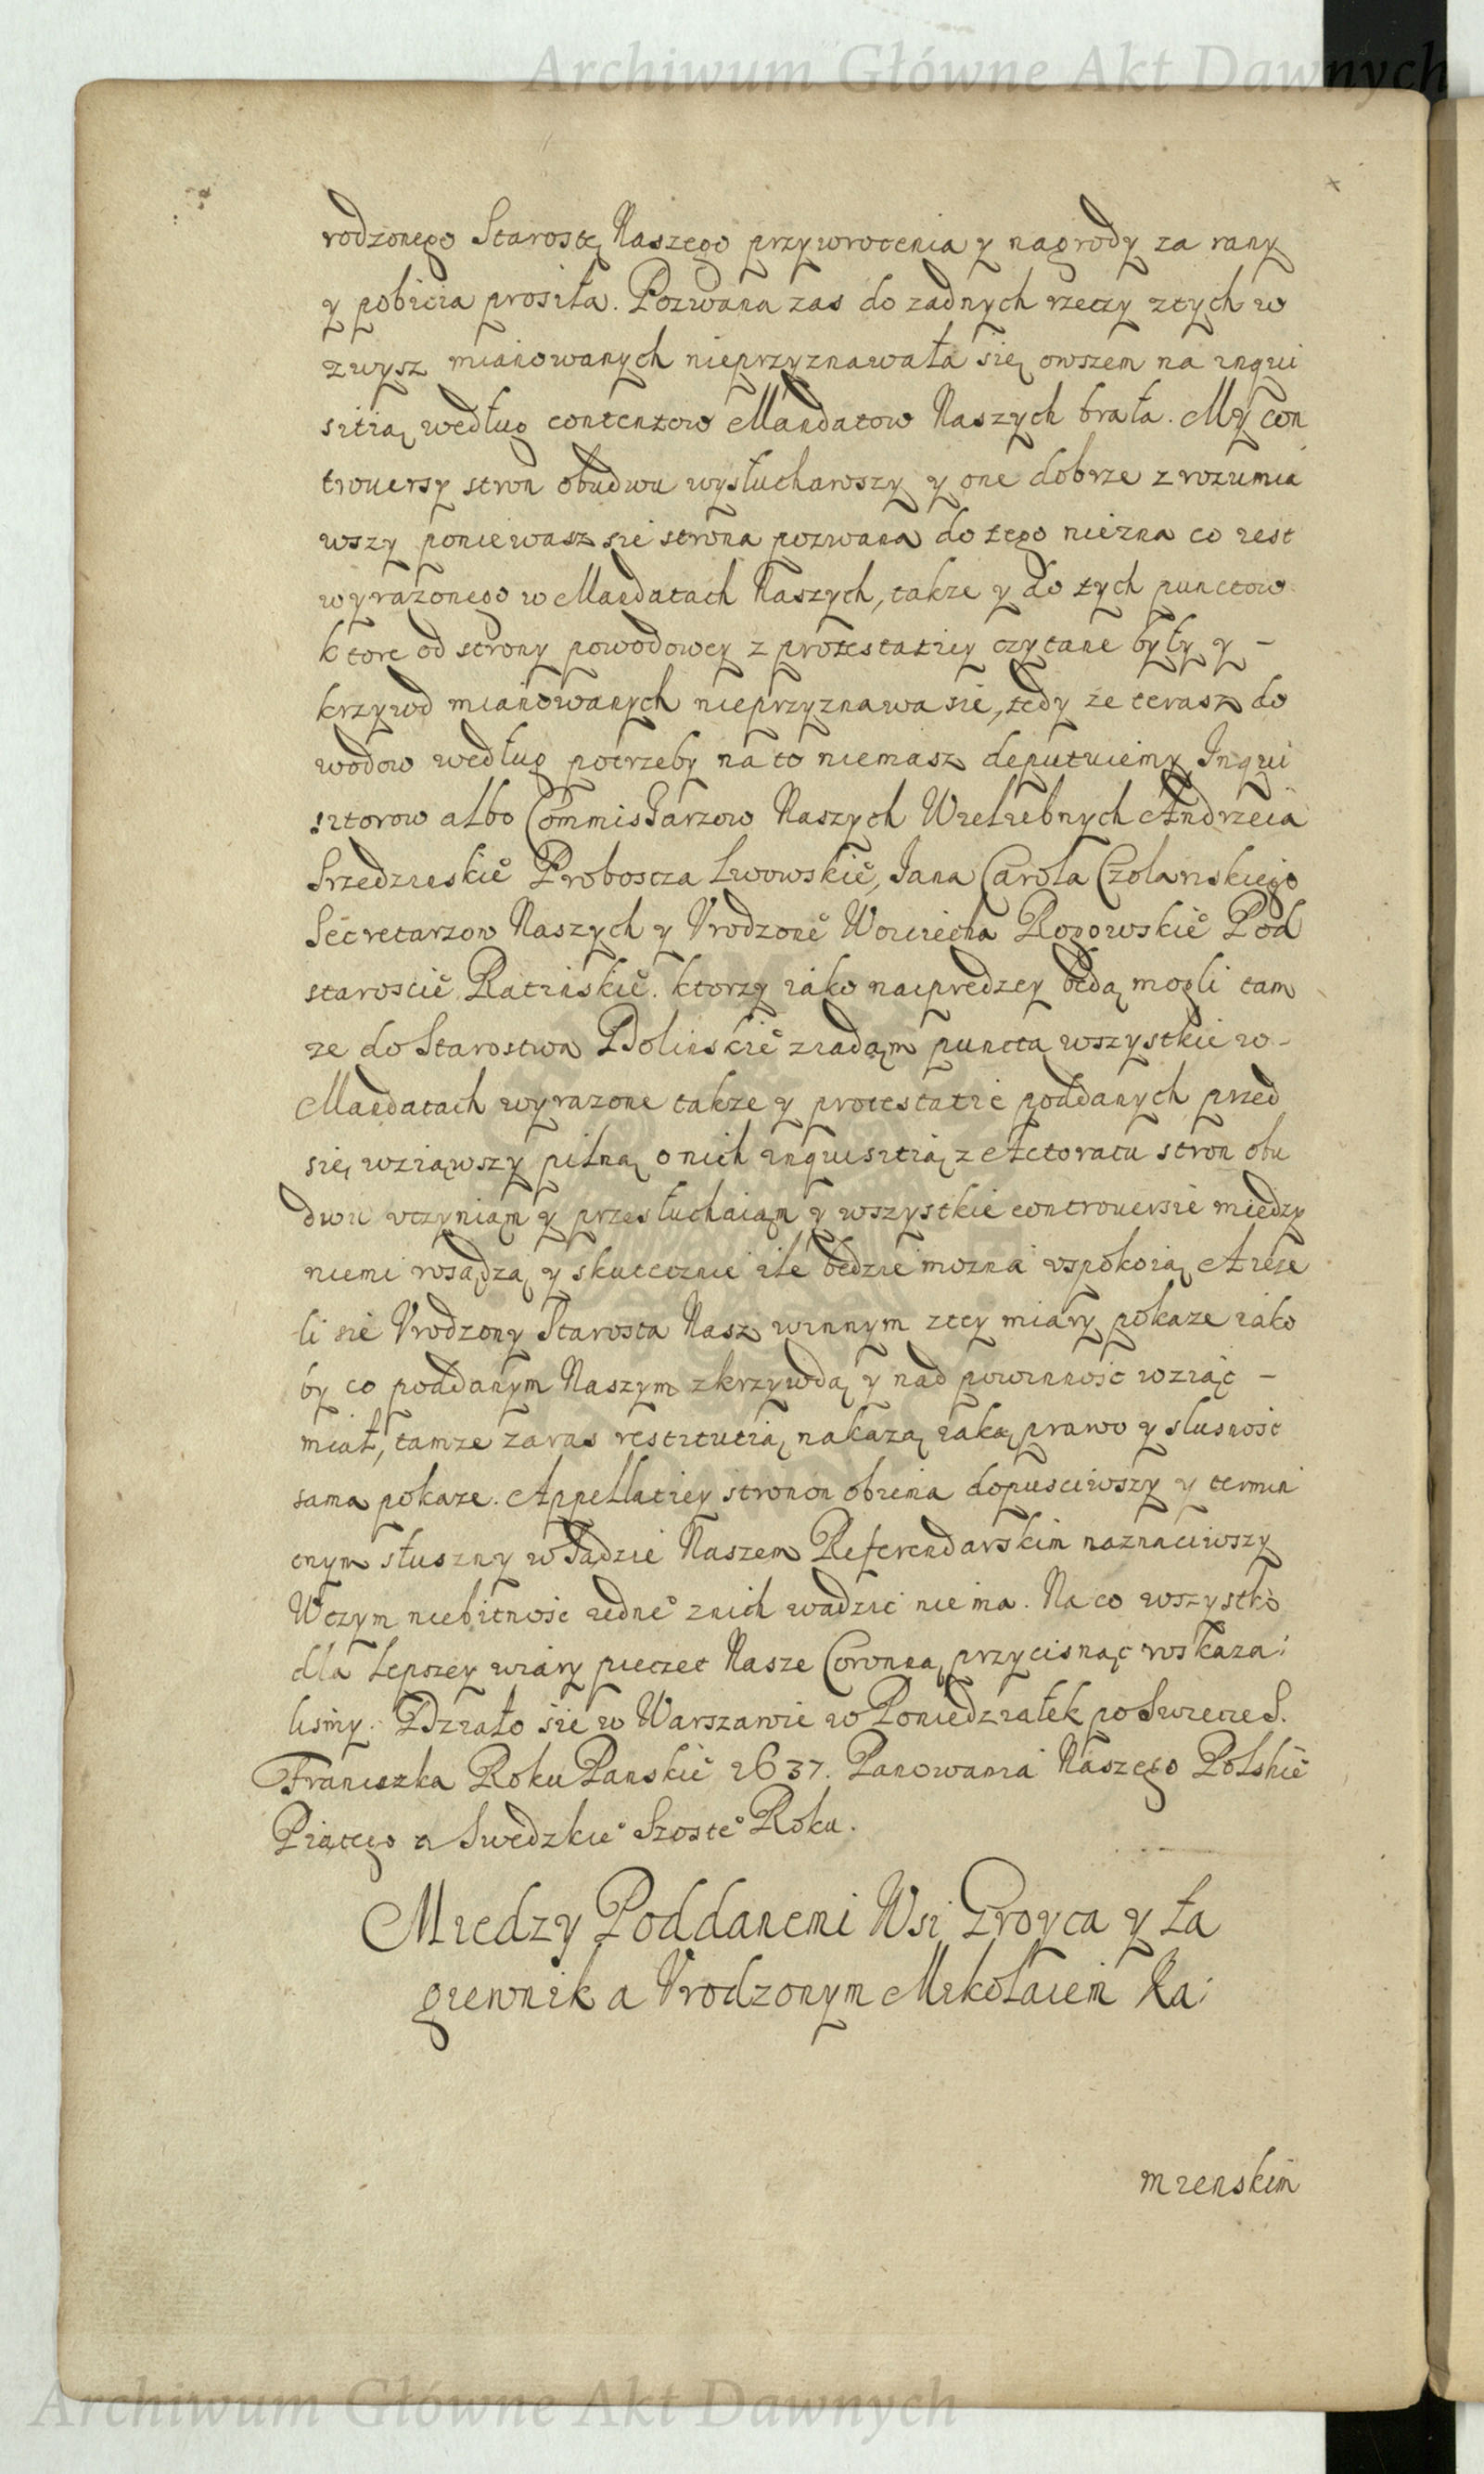 Archiwum Główne Akt Dawnych
rodzonego Starostę Naszego przywrocenia y nagrody za rany
y pobicia prosiła. Pozwana zas do zadnych rzeczy ztych w
zwysz mianowanych nieprzyznawała się owszem na inqui
sitią według contentow Mandatow Naszych brała. My con
trouersy stron obudwu wysłuchawszy y one dobrze zrozumia
wszy poniewasz sie strona pozwana do tego niezna co iest
wyrazonego w Mandatach Naszych, takze y do tych punctow
ktore od strony powodowey z protestatiey czytane były y -
krzywd mianowanych nieprzyznawa sie, tedy ze terasz do
wodow według potrzeby na to niemasz deputuiemy Inqui
sitorow albo Commissarzow Naszych Wielebnych Andrzeia
Srzedzieskie° Proboscza Lwowskie°, Jana Carola Czolanskiego
Secretarzow Naszych y Vrodzone° Woiciecha Rogowskie° Pod
staroscie° Ratinskie°. ktorzy iako naipredzey będą mogli tam
ze do Starostwa Dolinskie° ziadąm puncta wszystkie w -
Mandatach wyrazone takze y protestatie poddanych przed
się wziąwszy pilną o nich inquisitią z Actoratu stron obu
dwu vczyniąm y przesłuchaiąm y wszystkie controuersie między
niemi rosądzą y skutecznie ile będzie mozna vspokoią A ieze
li sie Vrodzony Starosta Nasz winnym ztey miary pokaze iako
by co poddanym Naszym zkrzywdą y nad powinnosc wziąc -
miał, tamze zaras restitutią nakazą iaką prawo y slusnosc
sama pokaze. Appellatiey stronom obiema dopusciwszy y termin
onym słuszny w Sądzie Naszem Referendarskim naznaciwszy
Wczym niebitnosc iedne° znich wadzic nie ma. Na co wszystko
dla lepszey wiary pieczec Nasze Coronną przycisnąc roskaza:
lismy. Działo sie w Warszawie w Poniedziałek po Swiecie S.
Franciszka Roku Panskie° 1637. Panowania Naszego Polskie°
Piątego a Swedzkie° Szoste° Roku.
Miedzy Poddanemi Wsi Troyca y Ła
giewnik a Vrodzonym Mikołaiem Ka:
mienskim
Archiwum Główne Akt Dawnych